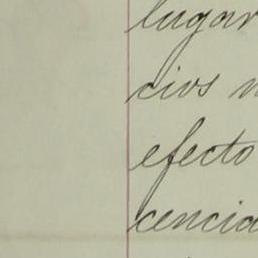 lugar
cios
efecto
cencia